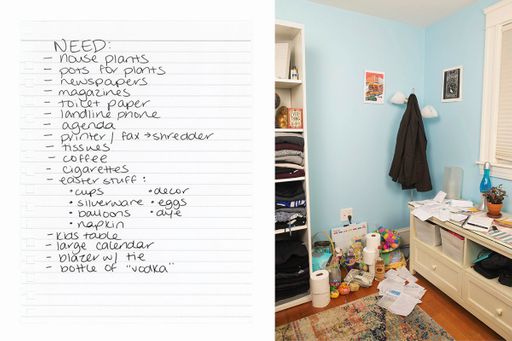 NEED:
- house plants
- pots for plants
- newspapers
- magazines
- toilet paper
- landline phone
- agenda
- printer / fax → shredder
- tissues
- coffee
- cigarettes
- easter stuff:
• cups • decor
• silverware • eggs
• balloons • dye
• napkin
- kids table
- large calendar
- blazer w/ tie
- bottle of "vodka"